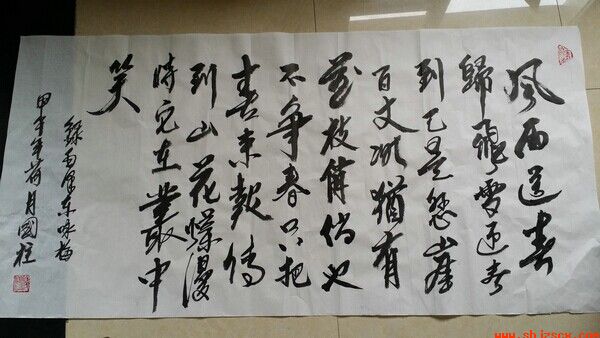 風雨送春
歸飛雪迎春
到已是懸崖
百丈冰猶有
花枝俏俏也
不争春只把
春来報待
到山花爛漫
時她在叢中
笑
錄毛澤東咏梅
甲午年荷月國柱